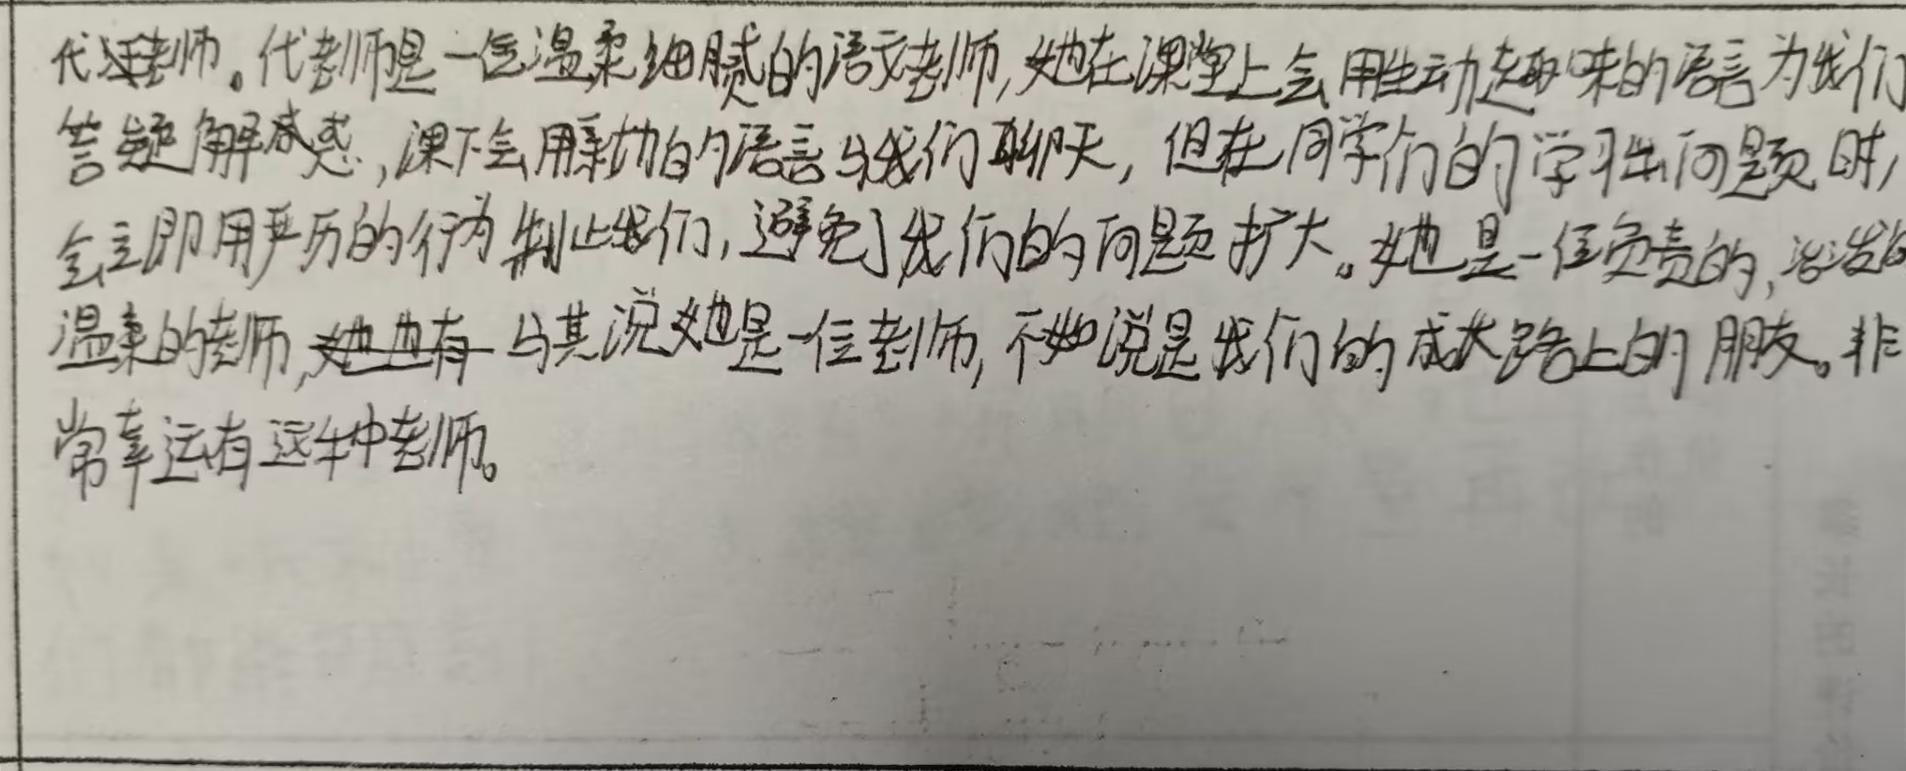 代老师。代老师是一位温柔细腻的语文老师,她在课堂上会用生动趣味的语言为我们
答疑解惑,课下会用亲切的语言与我们聊天,但在同学们的学习出问题时,
会立即用严厉的行为制止我们,避免了我们的问题扩大。她是一位负责的,
温柔的老师,她也有与其说她是一位老师,不如说是我们的成长路上的朋友。非
常幸运有这年中老师。